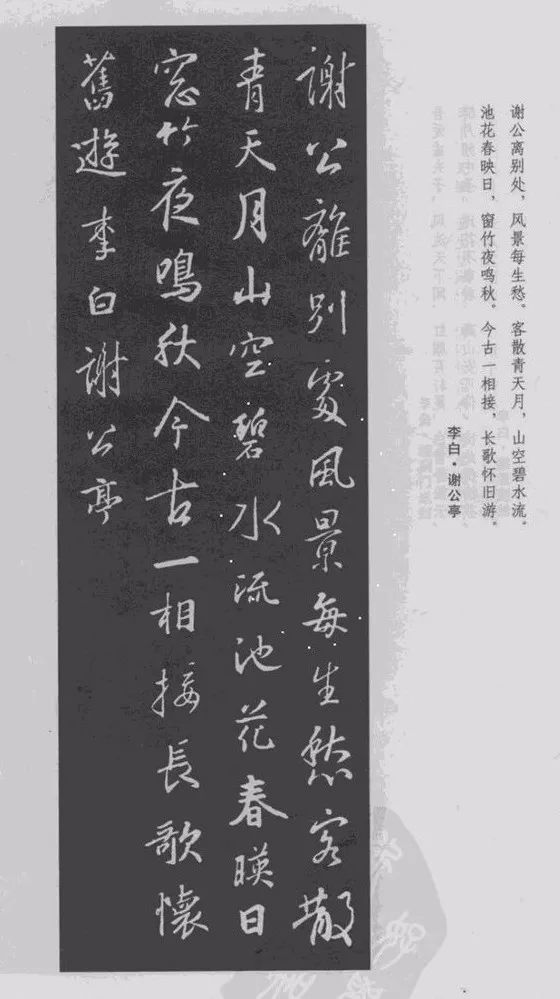 谢公离别处，风景每生愁。客散青天月，山空碧水流。
池花春映日，窗竹夜鸣秋。今古一相接，长歌怀旧游。
李白·谢公亭
謝公離別處風景每生愁客散
青天月山空碧水流池花春暎日
窓竹夜鳴秋今古一相接長歌懷
舊遊李白謝公亭